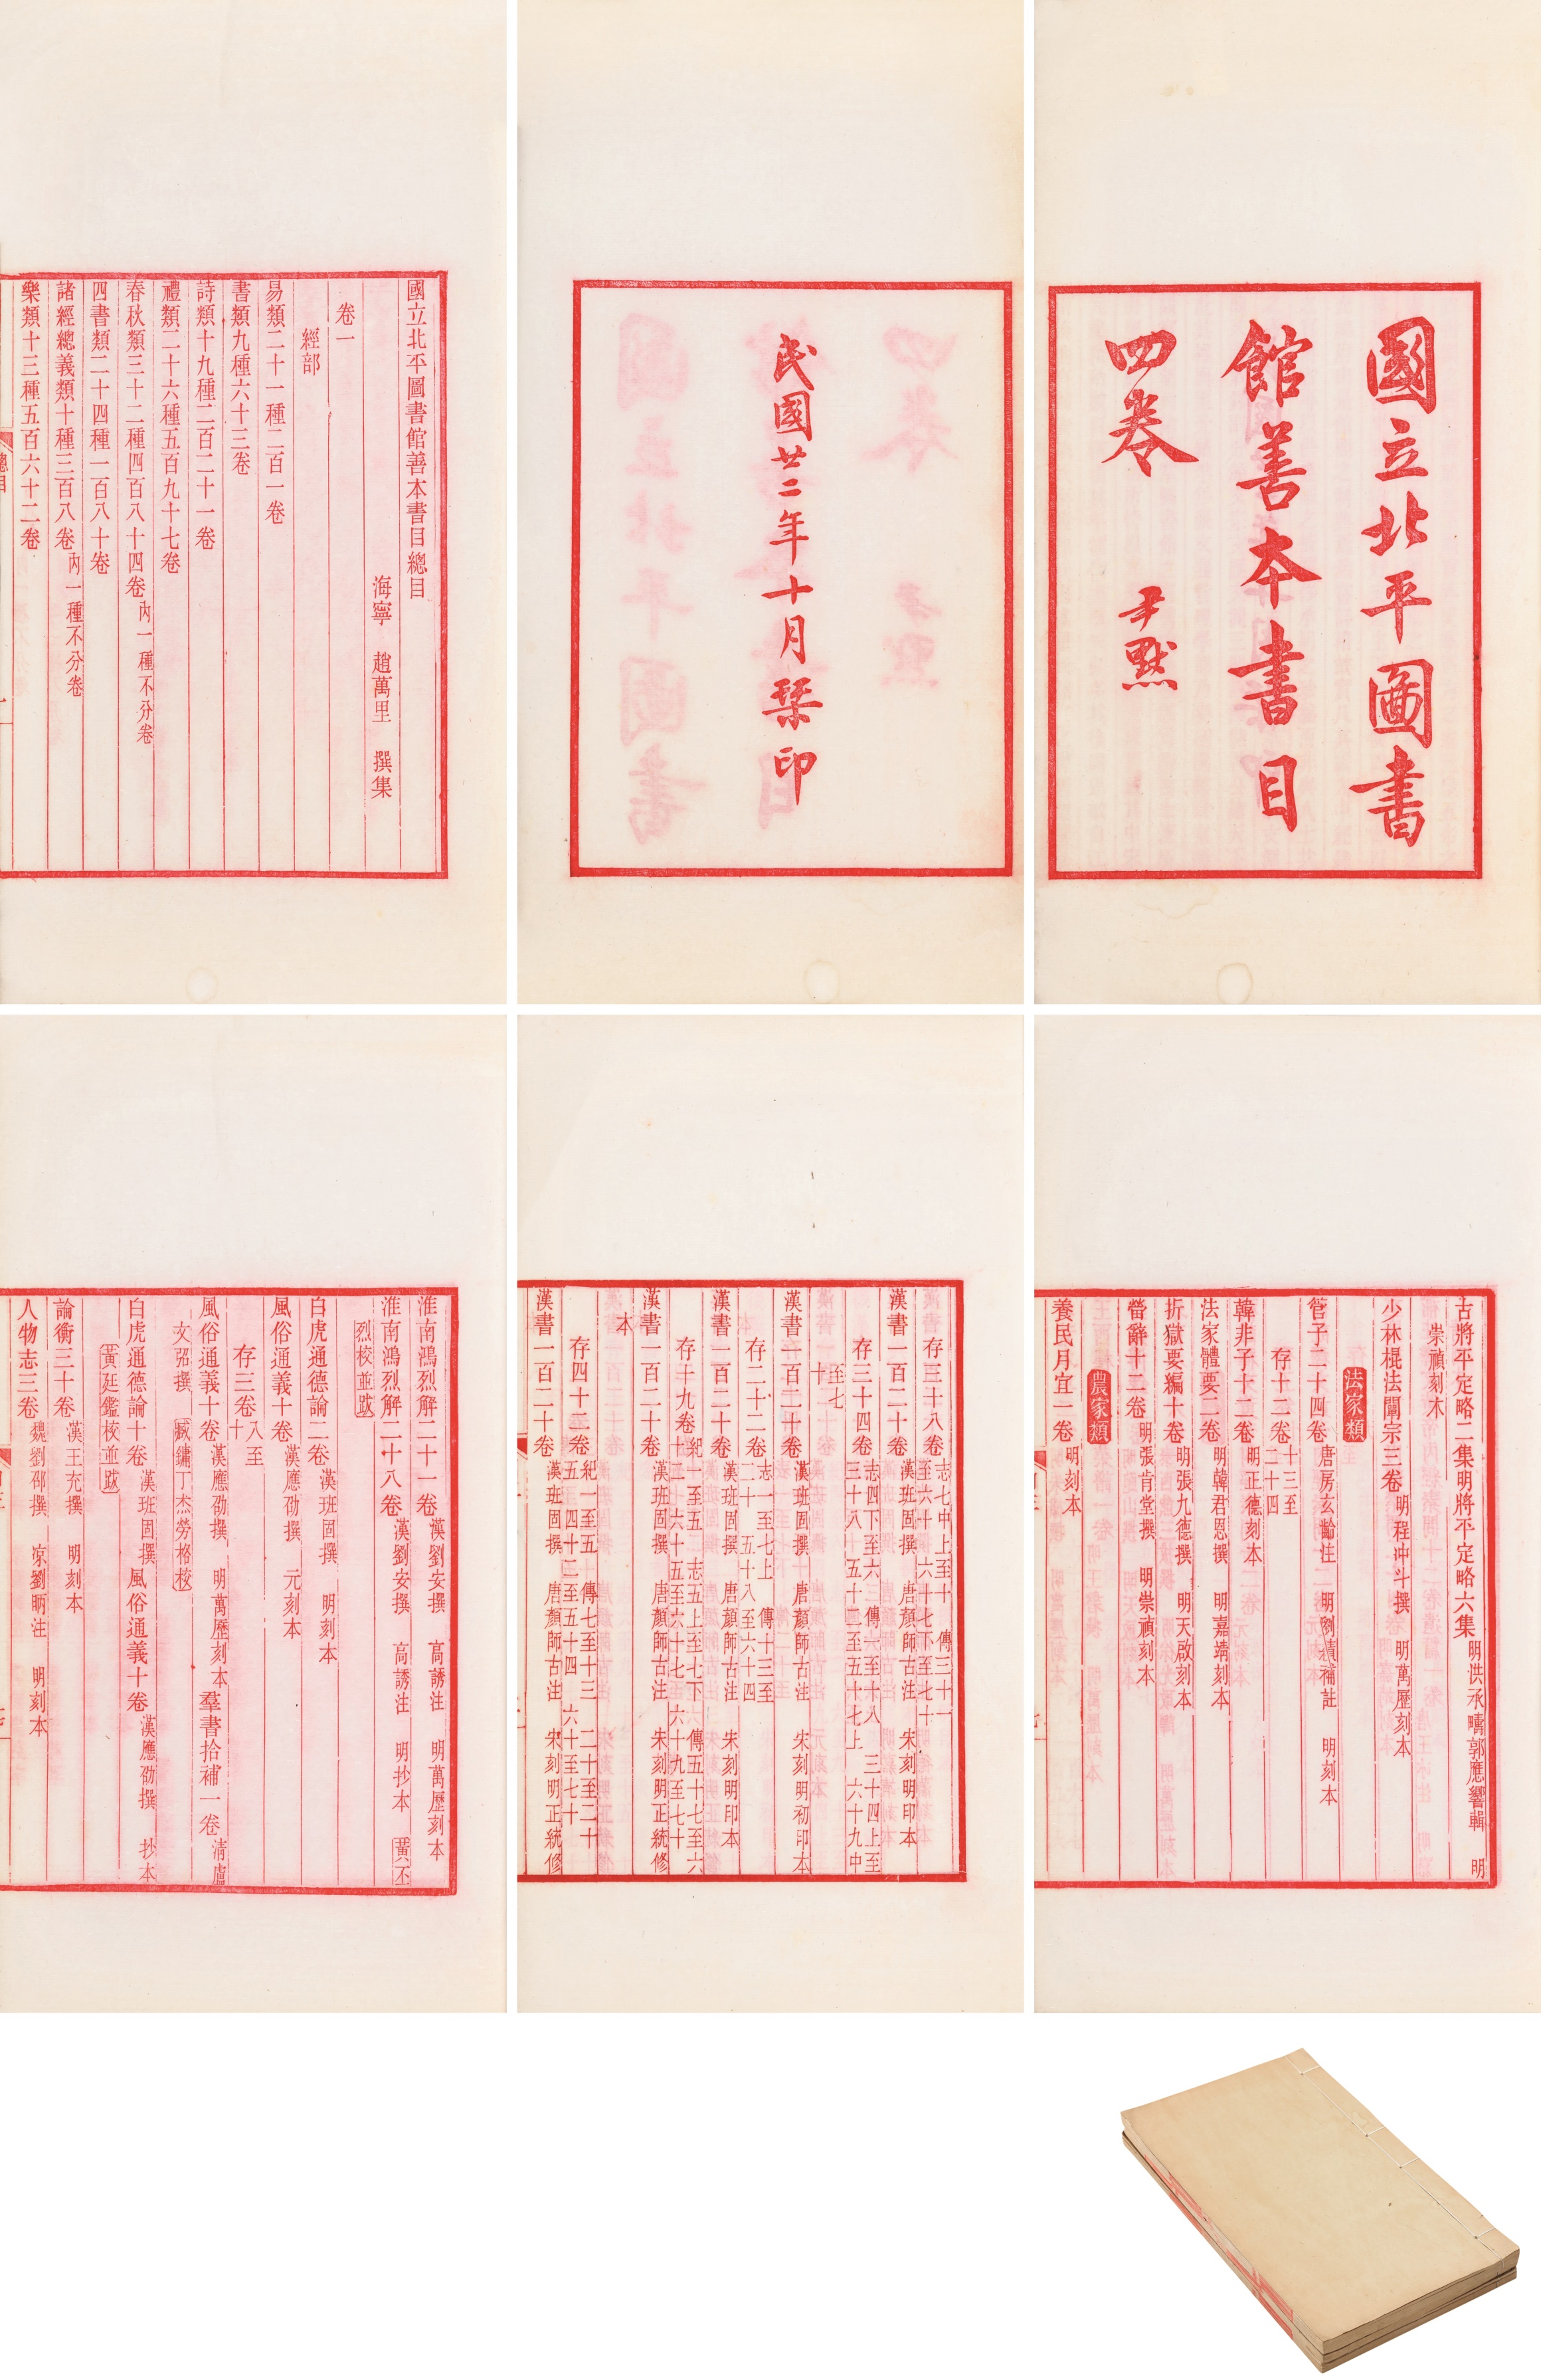 國立北平圖書
館善本書目
四卷
尹默
民國廿二年十月槧印
國立北平圖書館善本書目總目
海寧 趙萬里 撰集
卷一
經部
易類二十一種二百一卷
書類九種六十三卷
詩類十九種二百二十一卷
禮類二十六種五百九十七卷
春秋類三十二種四百八十四卷內一種不分卷
四書類二十四種一百八十卷
諸經總義類十種三百八卷內一種不分卷
樂類十三種五百六十二卷
總目
一
古將平定略二集明將平定略六集明洪承疇郭應響輯 明
崇禎刻本
少林棍法闡宗三卷 明程冲斗撰 明萬歷刻本
法家類
管子二十四卷 唐房玄齡注 明劉績補註 明刻本
存十二卷十三至二十四
韓非子十二卷 明正德刻本
法家體要二卷 明韓君恩撰 明嘉靖刻本
折獄要編十卷 明張九德撰 明天啟刻本
䇾辭十二卷 明張肯堂撰 明崇禎刻本
農家類
養民月宜一卷 明刻本
存三十八卷志七中上至十 傳三十一至六十 六十七下至七十
漢書一百二十卷 漢班固撰 唐顏師古注 宋刻明印本
存三十四卷志四下至六 傳六至十八 三十四上至三十八 五十四至五十七上 六十九中
至七十
漢書一百二十卷 漢班固撰 唐顏師古注 宋刻明初印本
存二十二卷志一至七上 傳十三至二十 五十八至六十四
漢書一百二十卷 漢班固撰 唐顏師古注 宋刻明印本
存十九卷紀一至五 志五上至七下 傳五十七至六十二 六十五至六十七 六十九至七十
漢書一百二十卷 漢班固撰 唐顏師古注 宋刻明正統修
本
存四十二卷紀一至五 傳七至十三 二十至二十五 四十二至五十四 六十至七十
漢書一百二十卷 漢班固撰 唐顏師古注 宋刻明正統修
淮南鴻烈解二十一卷 漢劉安撰 高誘注 明萬歷刻本
淮南鴻烈解二十八卷 漢劉安撰 高誘注 明抄本 黃丕
烈校並跋
白虎通德論二卷 漢班固撰 明刻本
風俗通義十卷 漢應劭撰 元刻本
存三卷八至十
風俗通義十卷 漢應劭撰 明萬歷刻本 羣書拾補一卷 清盧
文弨撰 臧鏞丁杰勞格校
白虎通德論十卷 漢班固撰 風俗通義十卷 漢應劭撰 抄本
黃廷鑑校並跋
論衡三十卷 漢王充撰 明刻本
人物志三卷 魏劉邵撰 凉劉昞注 明刻本